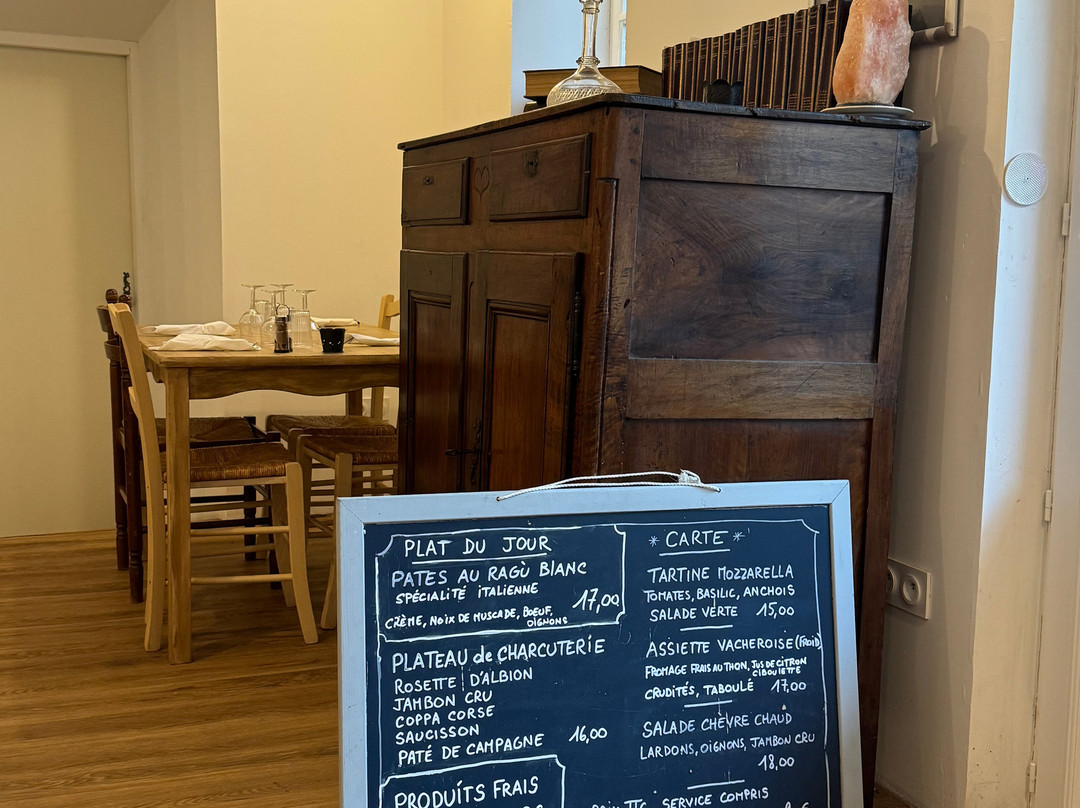 PLAT DU JOUR
PATES AU RAGÙ BLANC
SPÉCIALITÉ ITALIENNE
17,00
CRÈME, NOIX DE MUSCADE, BOEUF,
OIGNONS
PLATEAU de CHARCUTERIE
ROSETTE D'ALBION
JAMBON CRU
COPPA CORSE
SAUCISSON
PATÉ DE CAMPAGNE 16,00
PRODUITS FRAIS
* CARTE *
TARTINE MOZZARELLA
TOMATES, BASILIC, ANCHOIS
SALADE VERTE 15,00
ASSIETTE VACHEROISE (FROID)
FROMAGE FRAIS AU THON, JUS DE CITRON
CIBOULETTE
CRUDITÉS, TABOULÉ 17,00
SALADE CHÈVRE CHAUD
LARDONS, OIGNONS, JAMBON CRU
18,00
SERVICE COMPRIS